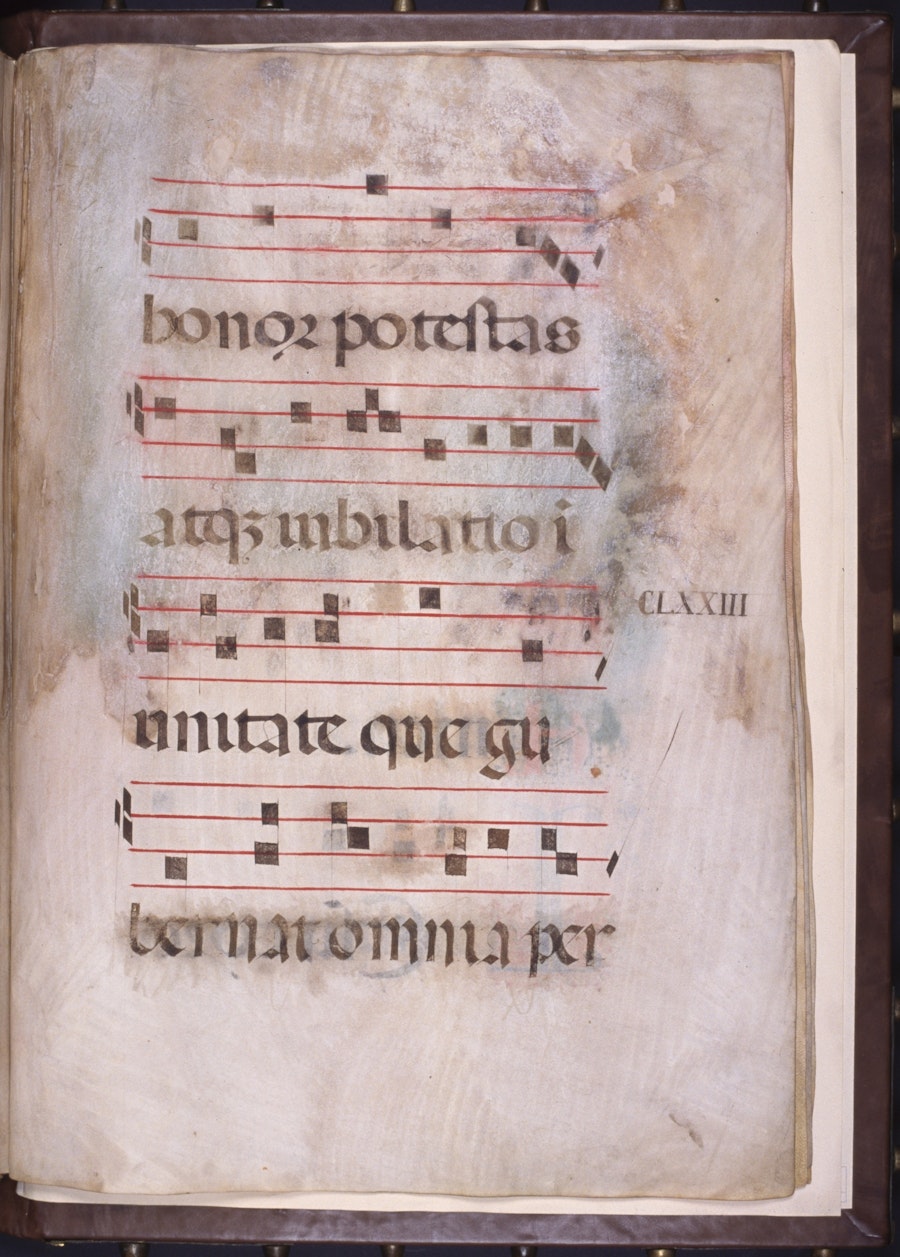 honor potestas
atqꝫ iubilatio i
CLXXIII
unitate que gu
bernat omnia per